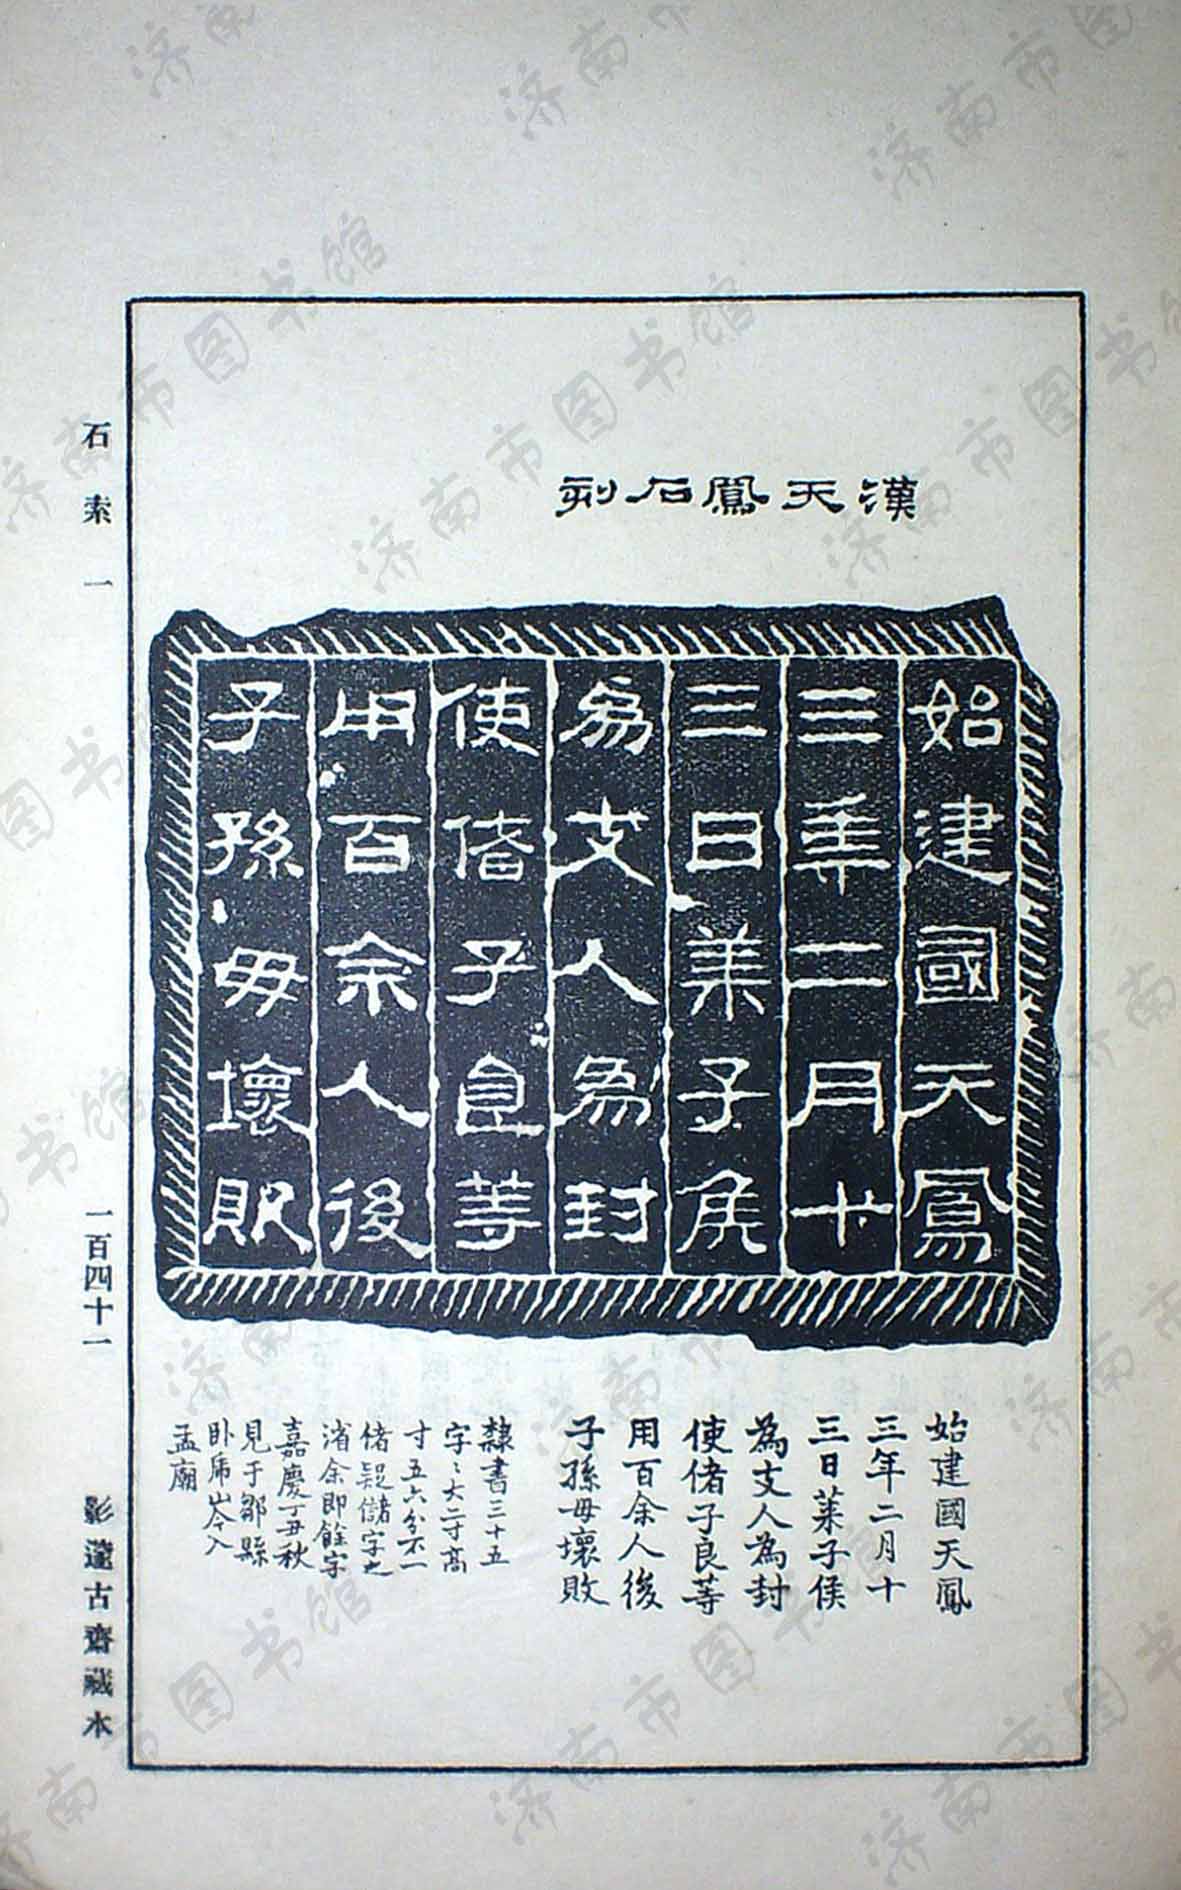 漢天鳳石刻
始建國天鳳
三年二月十
三日萊子侯
為支人為封
使偖子良等
用百余人後
子孫毋壞敗
始建國天鳳
三年二月十
三日萊子侯
為支人為封
使偖子良等
用百余人後
子孫毋壞敗
隸書三十五
字〻大二寸高
寸五六分不一
偖疑儲字之
渻余即餘字
嘉慶丁丑秋
見于鄒縣
卧虎岑入
孟廟
石索一
一百四十一
影邃古齋藏本
济南市图书馆